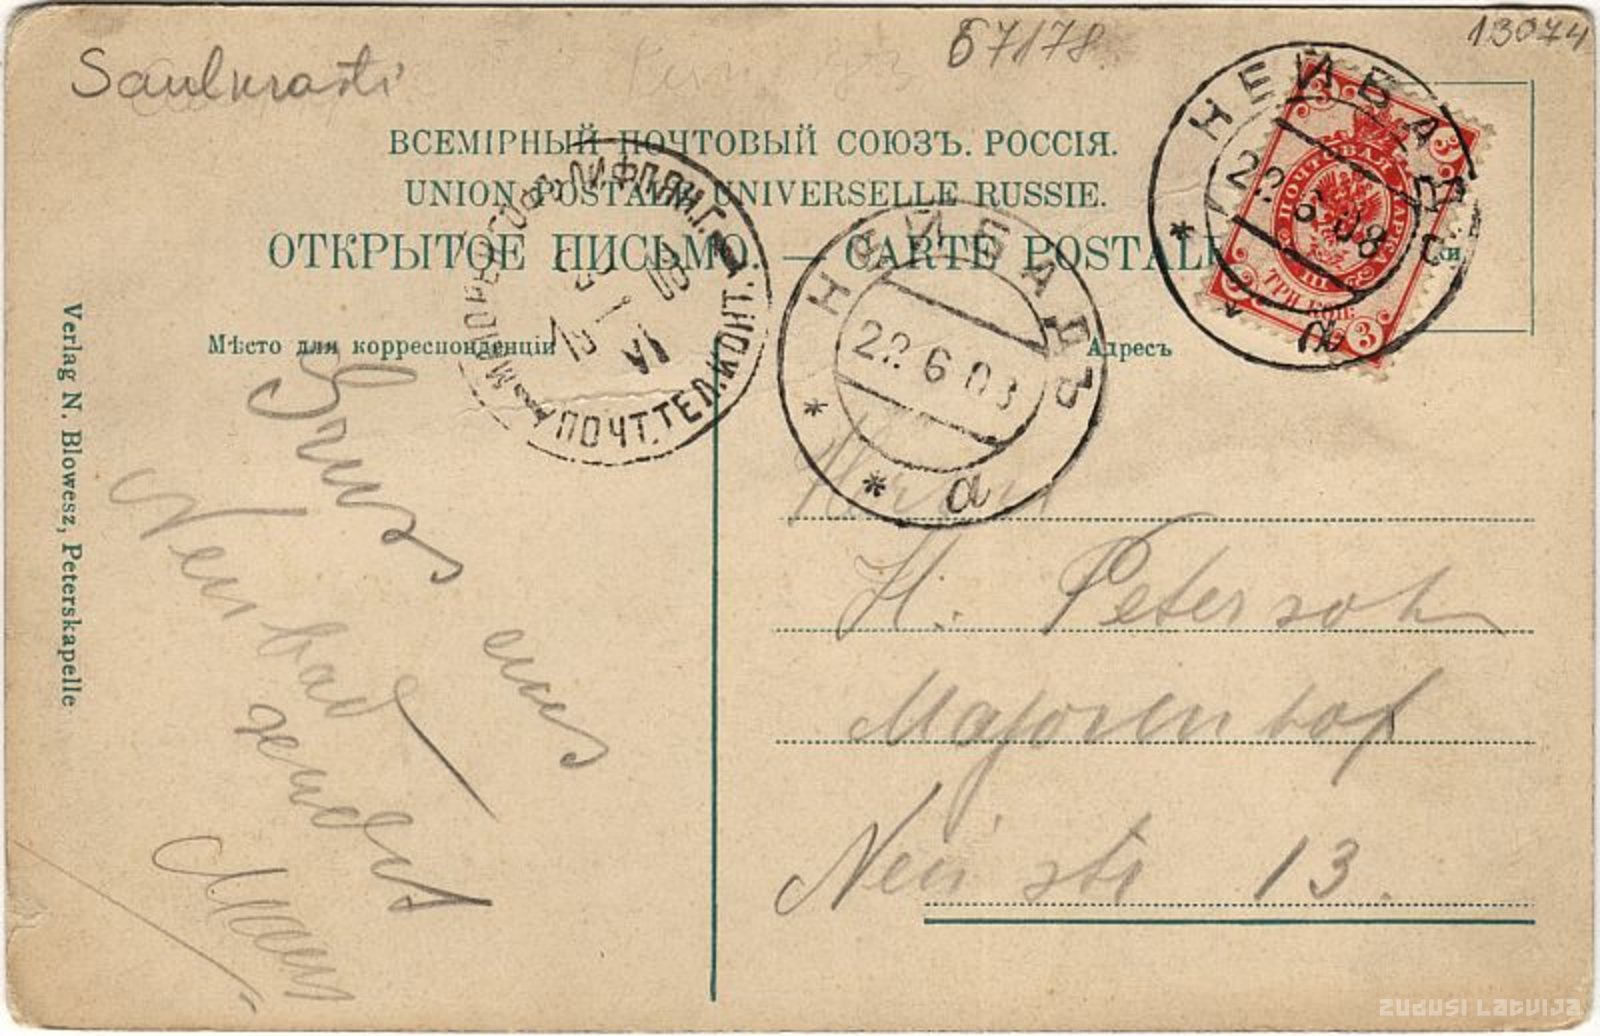 67178
13074
Saulkrasti
ВСЕМІРНЫЙ ПОЧТОВЫЙ СОЮЗЪ. РОССІЯ.
UNION POSTALE UNIVERSELLE RUSSIE.
ОТКРЫТОЕ ПИСЬМО. — CARTE POSTALE
НЕЙБАДЪ
22 6 08
a
ПОЧТОВАЯ МАРКА
ТРИ КОП.
3
3
3
НЕЙБАДЪ
22 6 08
a
ЛИФЛЯН.Г.
ПОЧТ.ТЕЛ.КОНТ.
VI
Мѣсто для корреспонденціи
Адресъ
Verlag N. Blowesz, Peterskapelle
Gruss aus
Neubad
sendet
H. Petersohn
Majorenhof
Neu str 13.
ZUDUSI LATVIJA